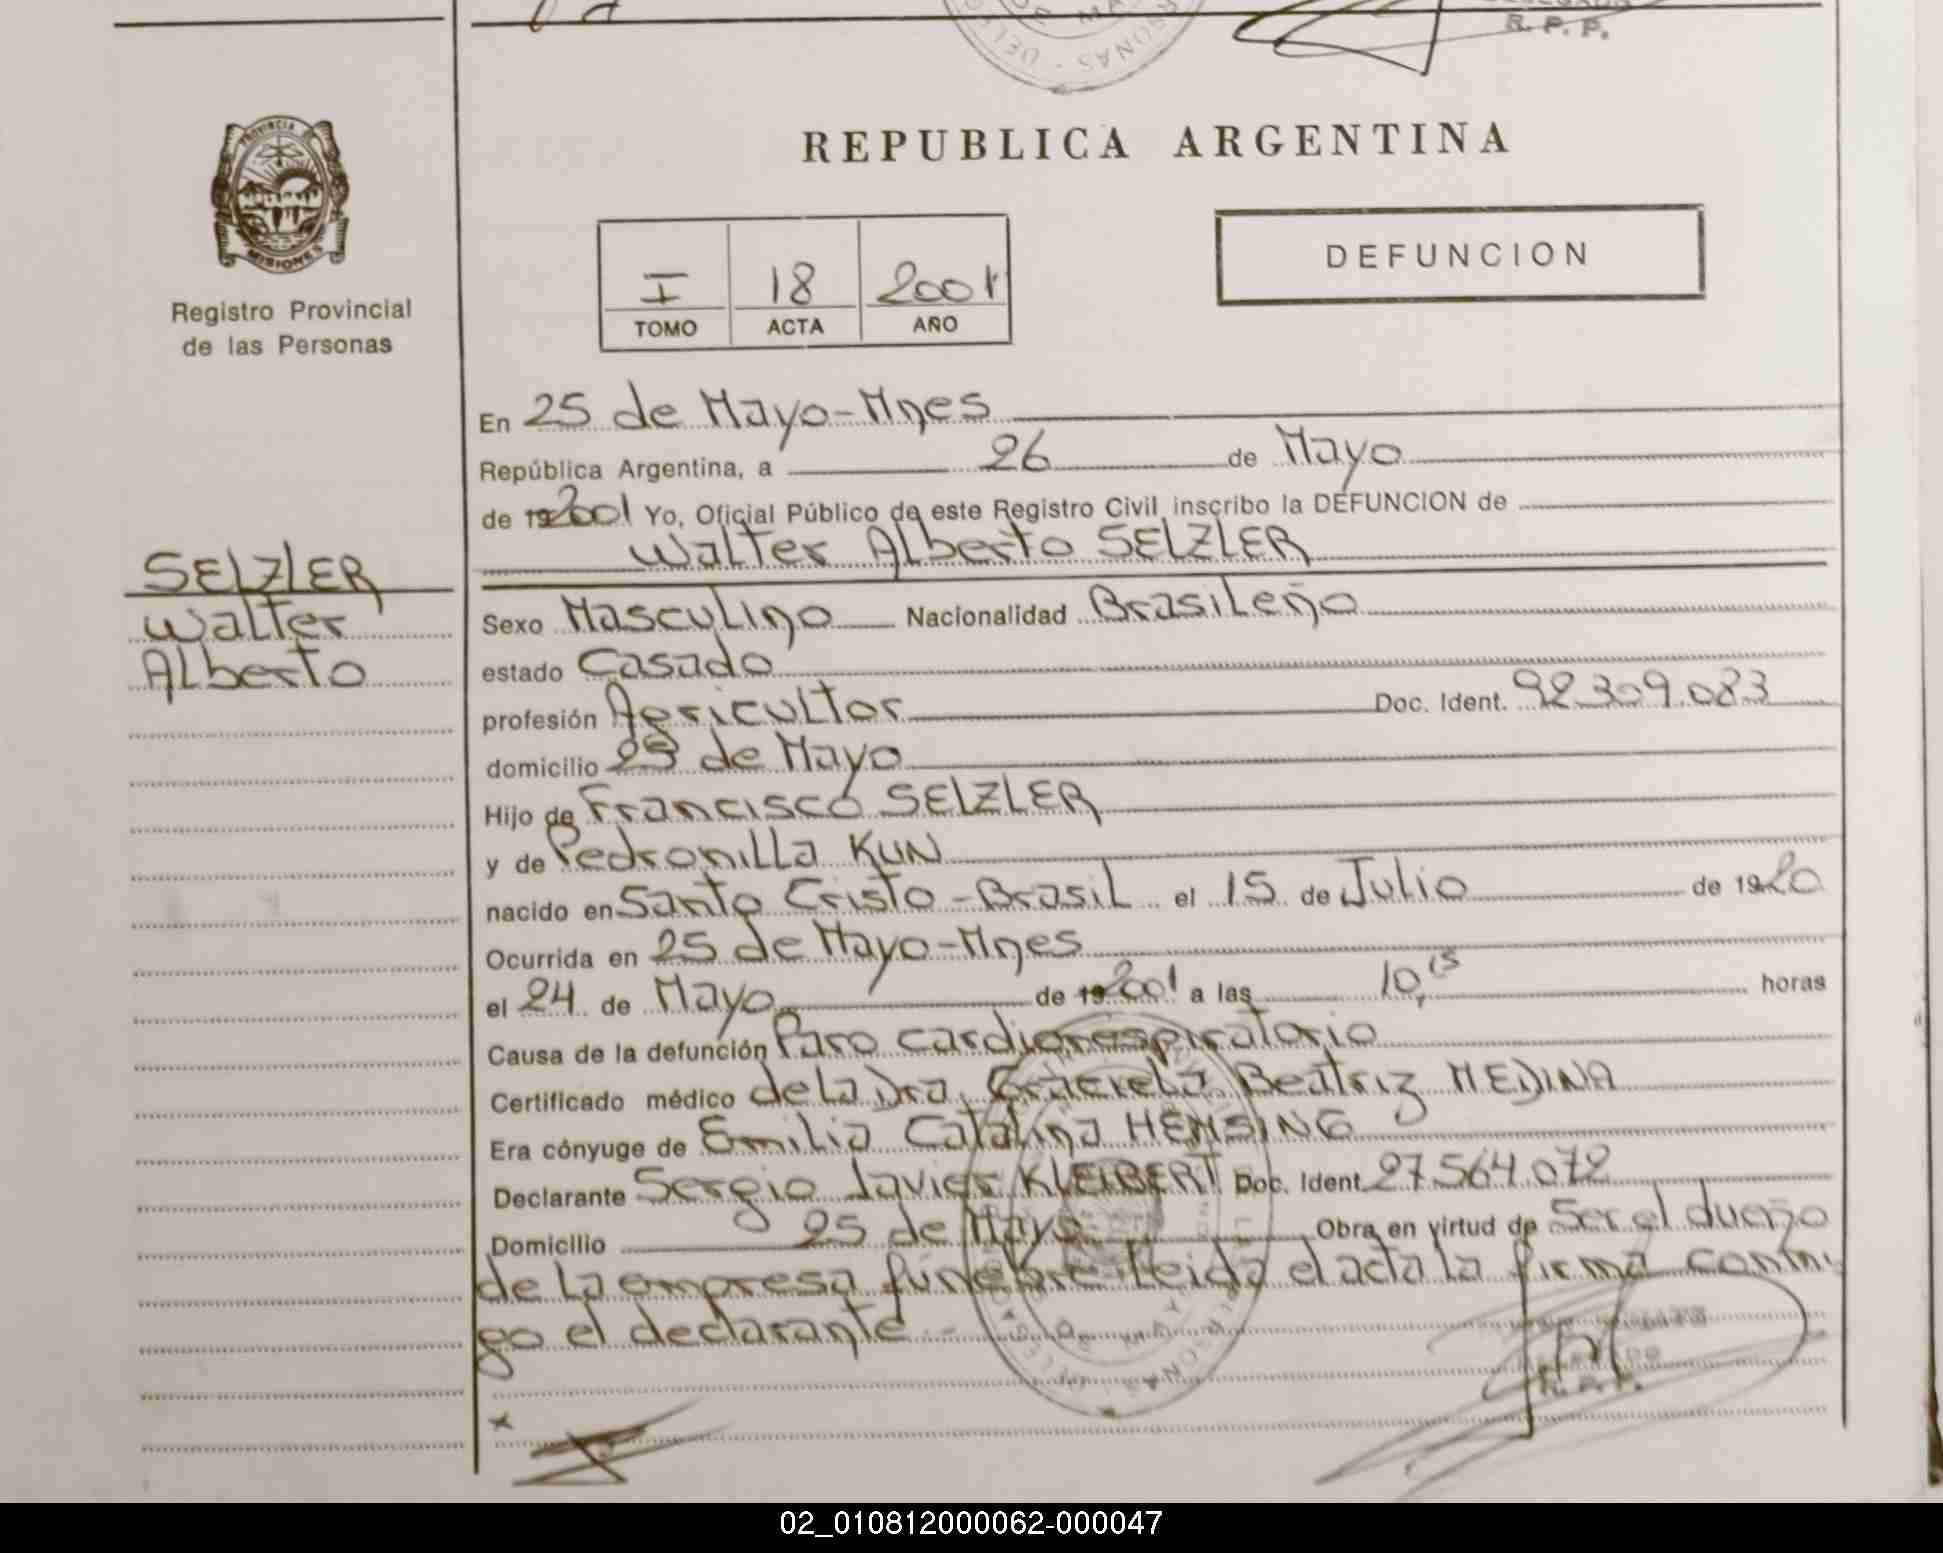 R. P. P.
PROVINCIA DE
MISIONES
Registro Provincial
de las Personas
REPUBLICA ARGENTINA
DEFUNCION
I 18 2001
TOMO ACTA AÑO
En 25 de Mayo-Mnes
República Argentina, a 26 de Mayo
de 192001 Yo, Oficial Público de este Registro Civil inscribo la DEFUNCION de
Walter Alberto SELZLER
SELZLER
Walter
Alberto
Sexo Masculino Nacionalidad Brasileño
estado Casado
profesión Agricultor Doc. Ident. 92.309.083
domicilio 25 de Mayo
Hijo de Francisco SELZLER
y de Pedronilla KUN
nacido en Santo Cristo-Brasil el 15 de Julio de 1920
Ocurrida en 25 de Mayo-Mnes
el 24 de Mayo de 192001 a las 10,15 horas
Causa de la defunción Paro cardiorespiratorio
Certificado médico de la Dra. Graciela Beatriz MEDINA
Era cónyuge de Emilia Catalina HENSING
Declarante Sergio Javier KLEIBERT Doc. Ident. 27.564.072
Domicilio 25 de Mayo Obra en virtud de Ser el dueño
de la empresa fúnebre. Leida el acta la firma conmi
go el declarante.-
R. P. P.
x
02_010812000062-000047